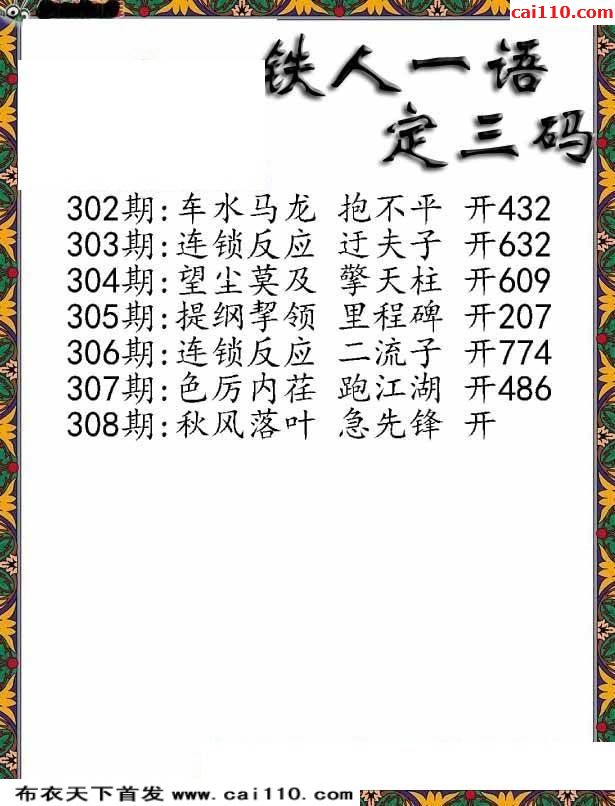 cai110.com
铁人一语
定三码
302期:车水马龙 抱不平 开432
303期:连锁反应 迂夫子 开632
304期:望尘莫及 擎天柱 开609
305期:提纲挈领 里程碑 开207
306期:连锁反应 二流子 开774
307期:色厉内荏 跑江湖 开486
308期:秋风落叶 急先锋 开
布衣天下首发 www.cai110.com